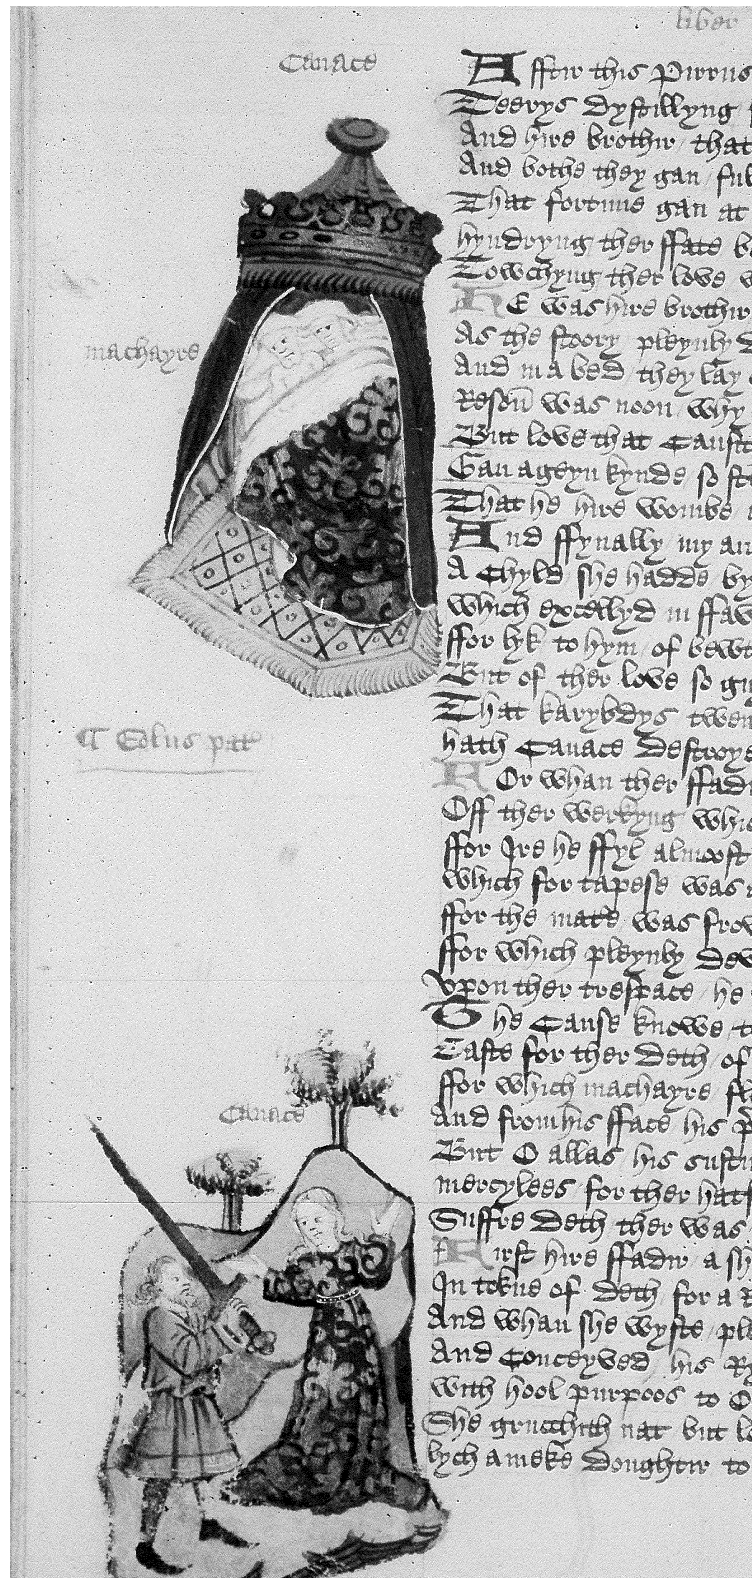 liber
Canace
Afftir this Pirrus
Teerys dystillyng
And hire brothir that
And bothe they gan ful
That fortune gan at
hyndryng ther ffate
Towchyng ther love
HE was hire brothir
As the stoory pleynly
And in a bed they lay
machayre
Resoun was noon why
But love that Causith
Gan ageyn kynde so
That he hire wombe
And ffynally my
A Chyld she hadde by
which excellyd in ffav
ffor lyk to hym of bewt
But of ther love so
That karybdys twen
¶ Eolus pater
hath Canace destroye
FOr whan ther ffadi
Off ther werkyng whic
ffor Ire he ffyl almost
which for tapese was
ffor the mate was frow
ffor which pleynly dev
vpon ther trespace he
The Cause knowe
Caste for ther deth of
ffor which machayre
And from his fface his
Canace
But O allas his sustir
mercylees for ther hat
Suffre deth ther was
First hire ffadir a
In tokne of deth for a
And whan she wyste
And Conceyved his
with hool purpoos to
She grucchith nat but
lych a meke doughtir to